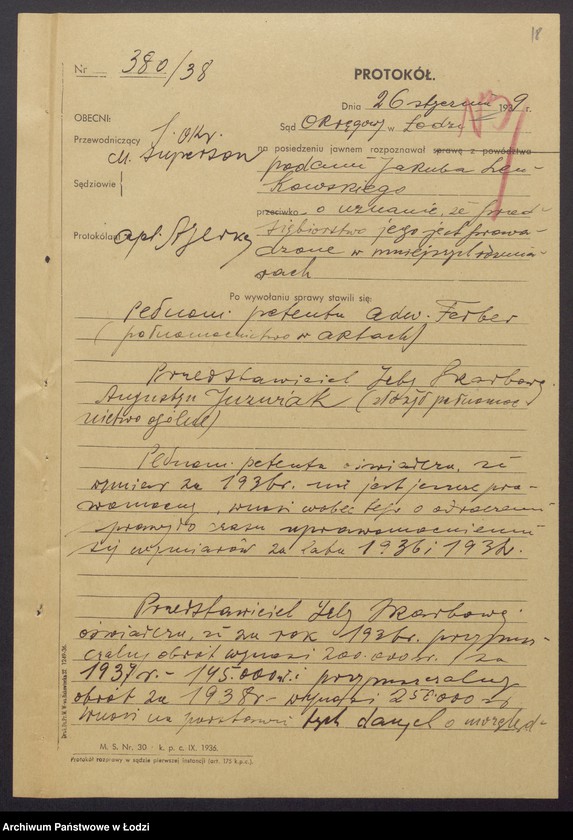 18
Nr 380/38
PROTOKÓŁ.
Dnia 26 stycznia 1939 r.
OBECNI:
Sąd Okręgowy w Łodzi
Przewodniczący S. Okr.
na posiedzeniu jawnem rozpoznował sprawę z powództwa
podanie Jakuba
Sędziowie
kowskiego
przeciwko o uznanie, że przed-
Protokólant apl.
siębiorstwo jego jest prowa-
dzone w mniejszych rozmia-
rach
Po wywołaniu sprawy stawili się:
Pełnom. petenta adw. Ferber
(pełnomocnictwo w aktach)
Przedstawiciel Izby Skarbowej
Augustyn (złożył pełnomoc-
nictwo ogólne)
Pełnom. petenta oświadcza, że
wymiar za 1936 r. nie jest jeszcze pra-
womocny, wnosi wobec tego o odroczenie
sprawy do czasu uprawomocnienia
się wymiarów za lata 1936 i 1937.
Przedstawiciel Izby Skarbowej
oświadcza, że za rok 1936 r. przypusz-
czalny obrót wynosi 200.000 za
1937 r. - 145.000 i przypuszczalny
obrót za 1938 r. wynosi zł
wnosi na podstawie tych danych o
M. S. Nr. 30 - k. p. c. IX. 1936.
Protokół rozprawy w sądzie pierwszej instancji (art. 175 k.p.c.).
Archiwum Państwowe w Łodzi